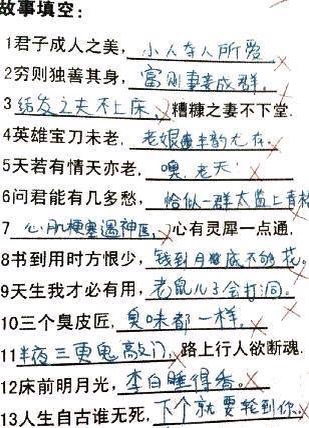 故事填空：
1君子成人之美，小人夺人所爱
2穷则独善其身，富则妻妾成群。
3结发之夫不上床，糟糠之妻不下堂.
4英雄宝刀未老，老娘丰韵尤在。
5天若有情天亦老，噢，老天
6问君能有几多愁，恰似一群太监上青楼
7心肌梗塞遇神医，心有灵犀一点通.
8书到用时方恨少，钱到月底不够花。
9天生我才必有用，老鼠儿子会打洞。
10三个臭皮匠，臭味都一样。
11半夜三更鬼敲门，路上行人欲断魂.
12床前明月光，李白睡得香。
13人生自古谁无死，下个就要轮到你。